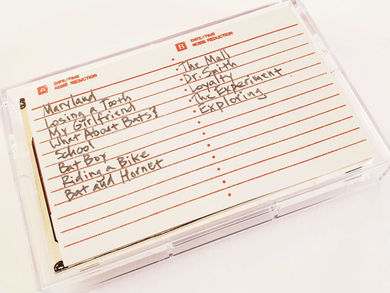 A DATE/TIME
NOISE REDUCTION
Maryland
Losing a Tooth
My Girlfriend
What About Bats?
School
Bat Boy
Riding a Bike
Bat and Hornet
B DATE/TIME
NOISE REDUCTION
The Mall
Dr. Smith
Loyalty
The Experiment
Exploring